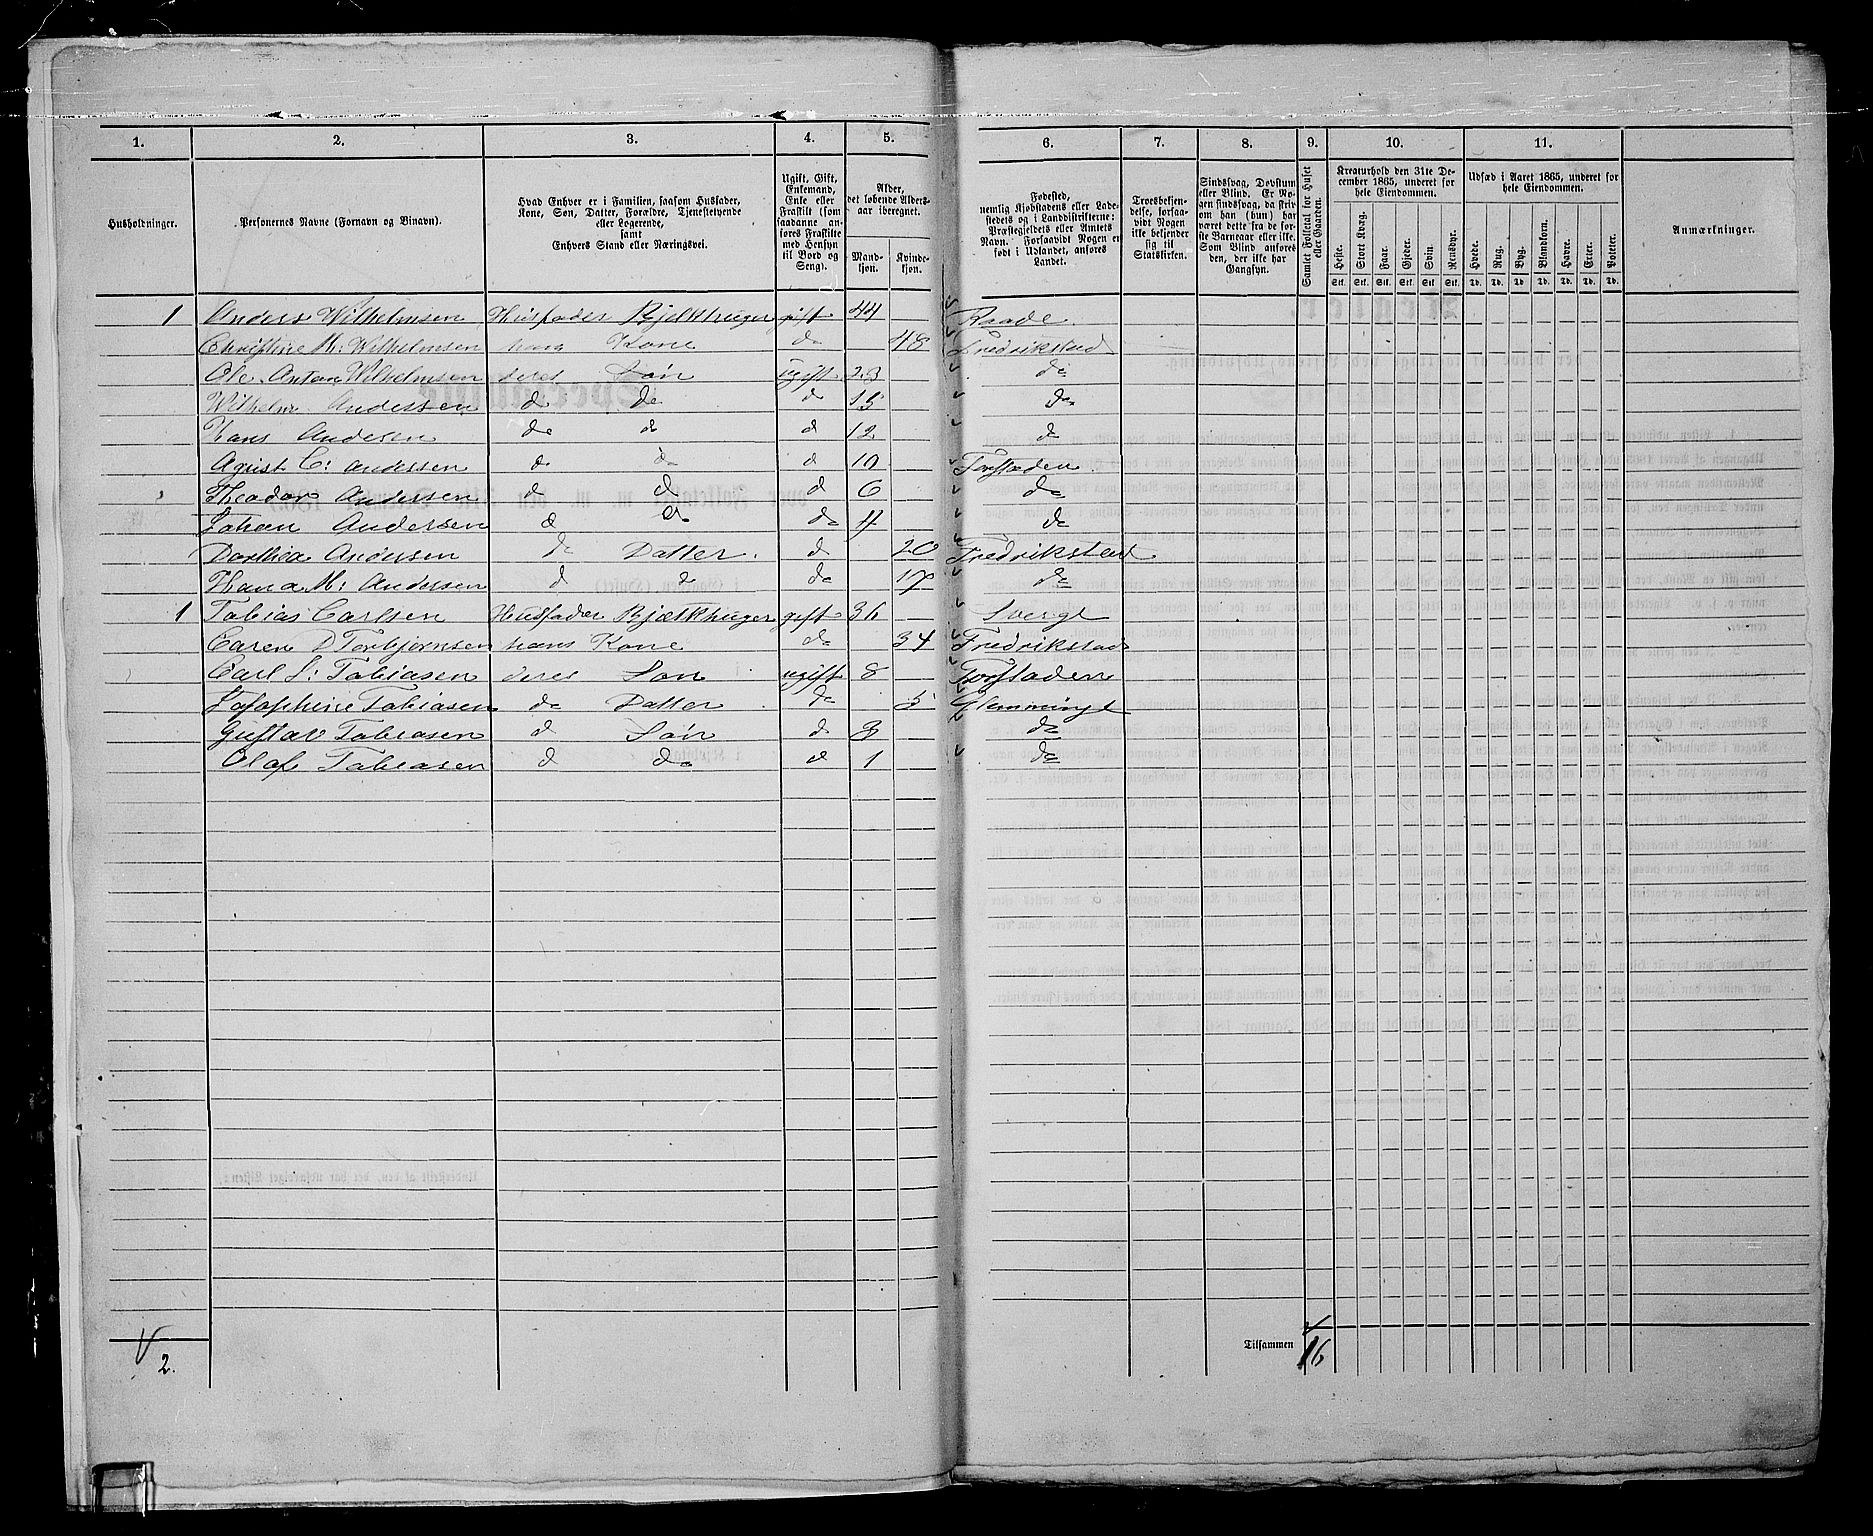 1. 2. 3. 4. 5. 6. 7. 8. 9. 10. 11.
Husholdninger.
Personernes Navne (Fornavn og Binavn).
Hvad Enhver er i Familien, saasom Husfader, Kone, Søn, Datter, Forældre, Tjenestetyende eller Logerende, samt Enhvers Stand eller Næringsvei.
Ugift, Gift, Enkemand, Enke eller Fraskilt (som saadanne anføres Fraskilte med Hensyn til Bord og Seng).
Alder, det løbende Aldersaar iberegnet.
Mandkjøn. Kvindekjøn.
Fødested, nemlig Kjøbstadens eller Ladestedets og i Landdistrikterne: Præstegjeldets eller Amtets Navn. Forsaavidt Nogen er født i Udlandet, anføres Landet.
Troesbekjendelse, forsaavidt Nogen ikke bekjender sig til Statskirken.
Sindssvag, Døvstum eller Blind. Er Nogen sindssvag, da skrives om han (hun) har været dette fra de første Barneaar eller ikke. Som Blind anføres den, der ikke har Gangsyn.
Samlet Folketal for Huset eller Gaarden.
Kreaturhold den 31te December 1865, underet for hele Eiendommen.
Heste. Stort Kvæg. Faar. Gjeder. Svin. Rensdyr.
Stk. Stk. Stk. Stk. Stk. Stk.
Udsæd i Aaret 1865, underet for hele Eiendommen.
Hvede. Rug. Byg. Blandkorn. Havre. Erter. Poteter.
Td. Td. Td. Td. Td. Td. Td.
Anmærkninger.
1 Anders Wilhelmsen Husfader Bjelkhuger gift 44 Raade
Christine M: Wilhelmsen hans Kone do 48 Fredrikstad
Ole Anton Wilhelmsen deres Søn ugift 23 do
Wilhelm Andersen d do d 15 do
Hans Andersen do d d 12 d
Agust C: Andersen d do d 10 Torsfaden
Theodor Andersen d d d 6 do
Johan Andersen d d do 4 do
Dorthea Andersen do Datter d 20 Fredrikstad
Hana M: Andersen d d do 17 do
1 Tobias Carlsen Husfader Bjælkhuger gift 36 Sverge
Caren D Torbjørnsen hans Kone do 34 Fredrikstad
Carl S: Tobiasen deres Søn ugift 8 Torsfaden
Josephine Tobiasen do Datter do 5 Glemminge
Gustav Tobiasen d Søn d 3 do
Olaf Tobiasen d do d 1 do
2.
Tilsammen 16